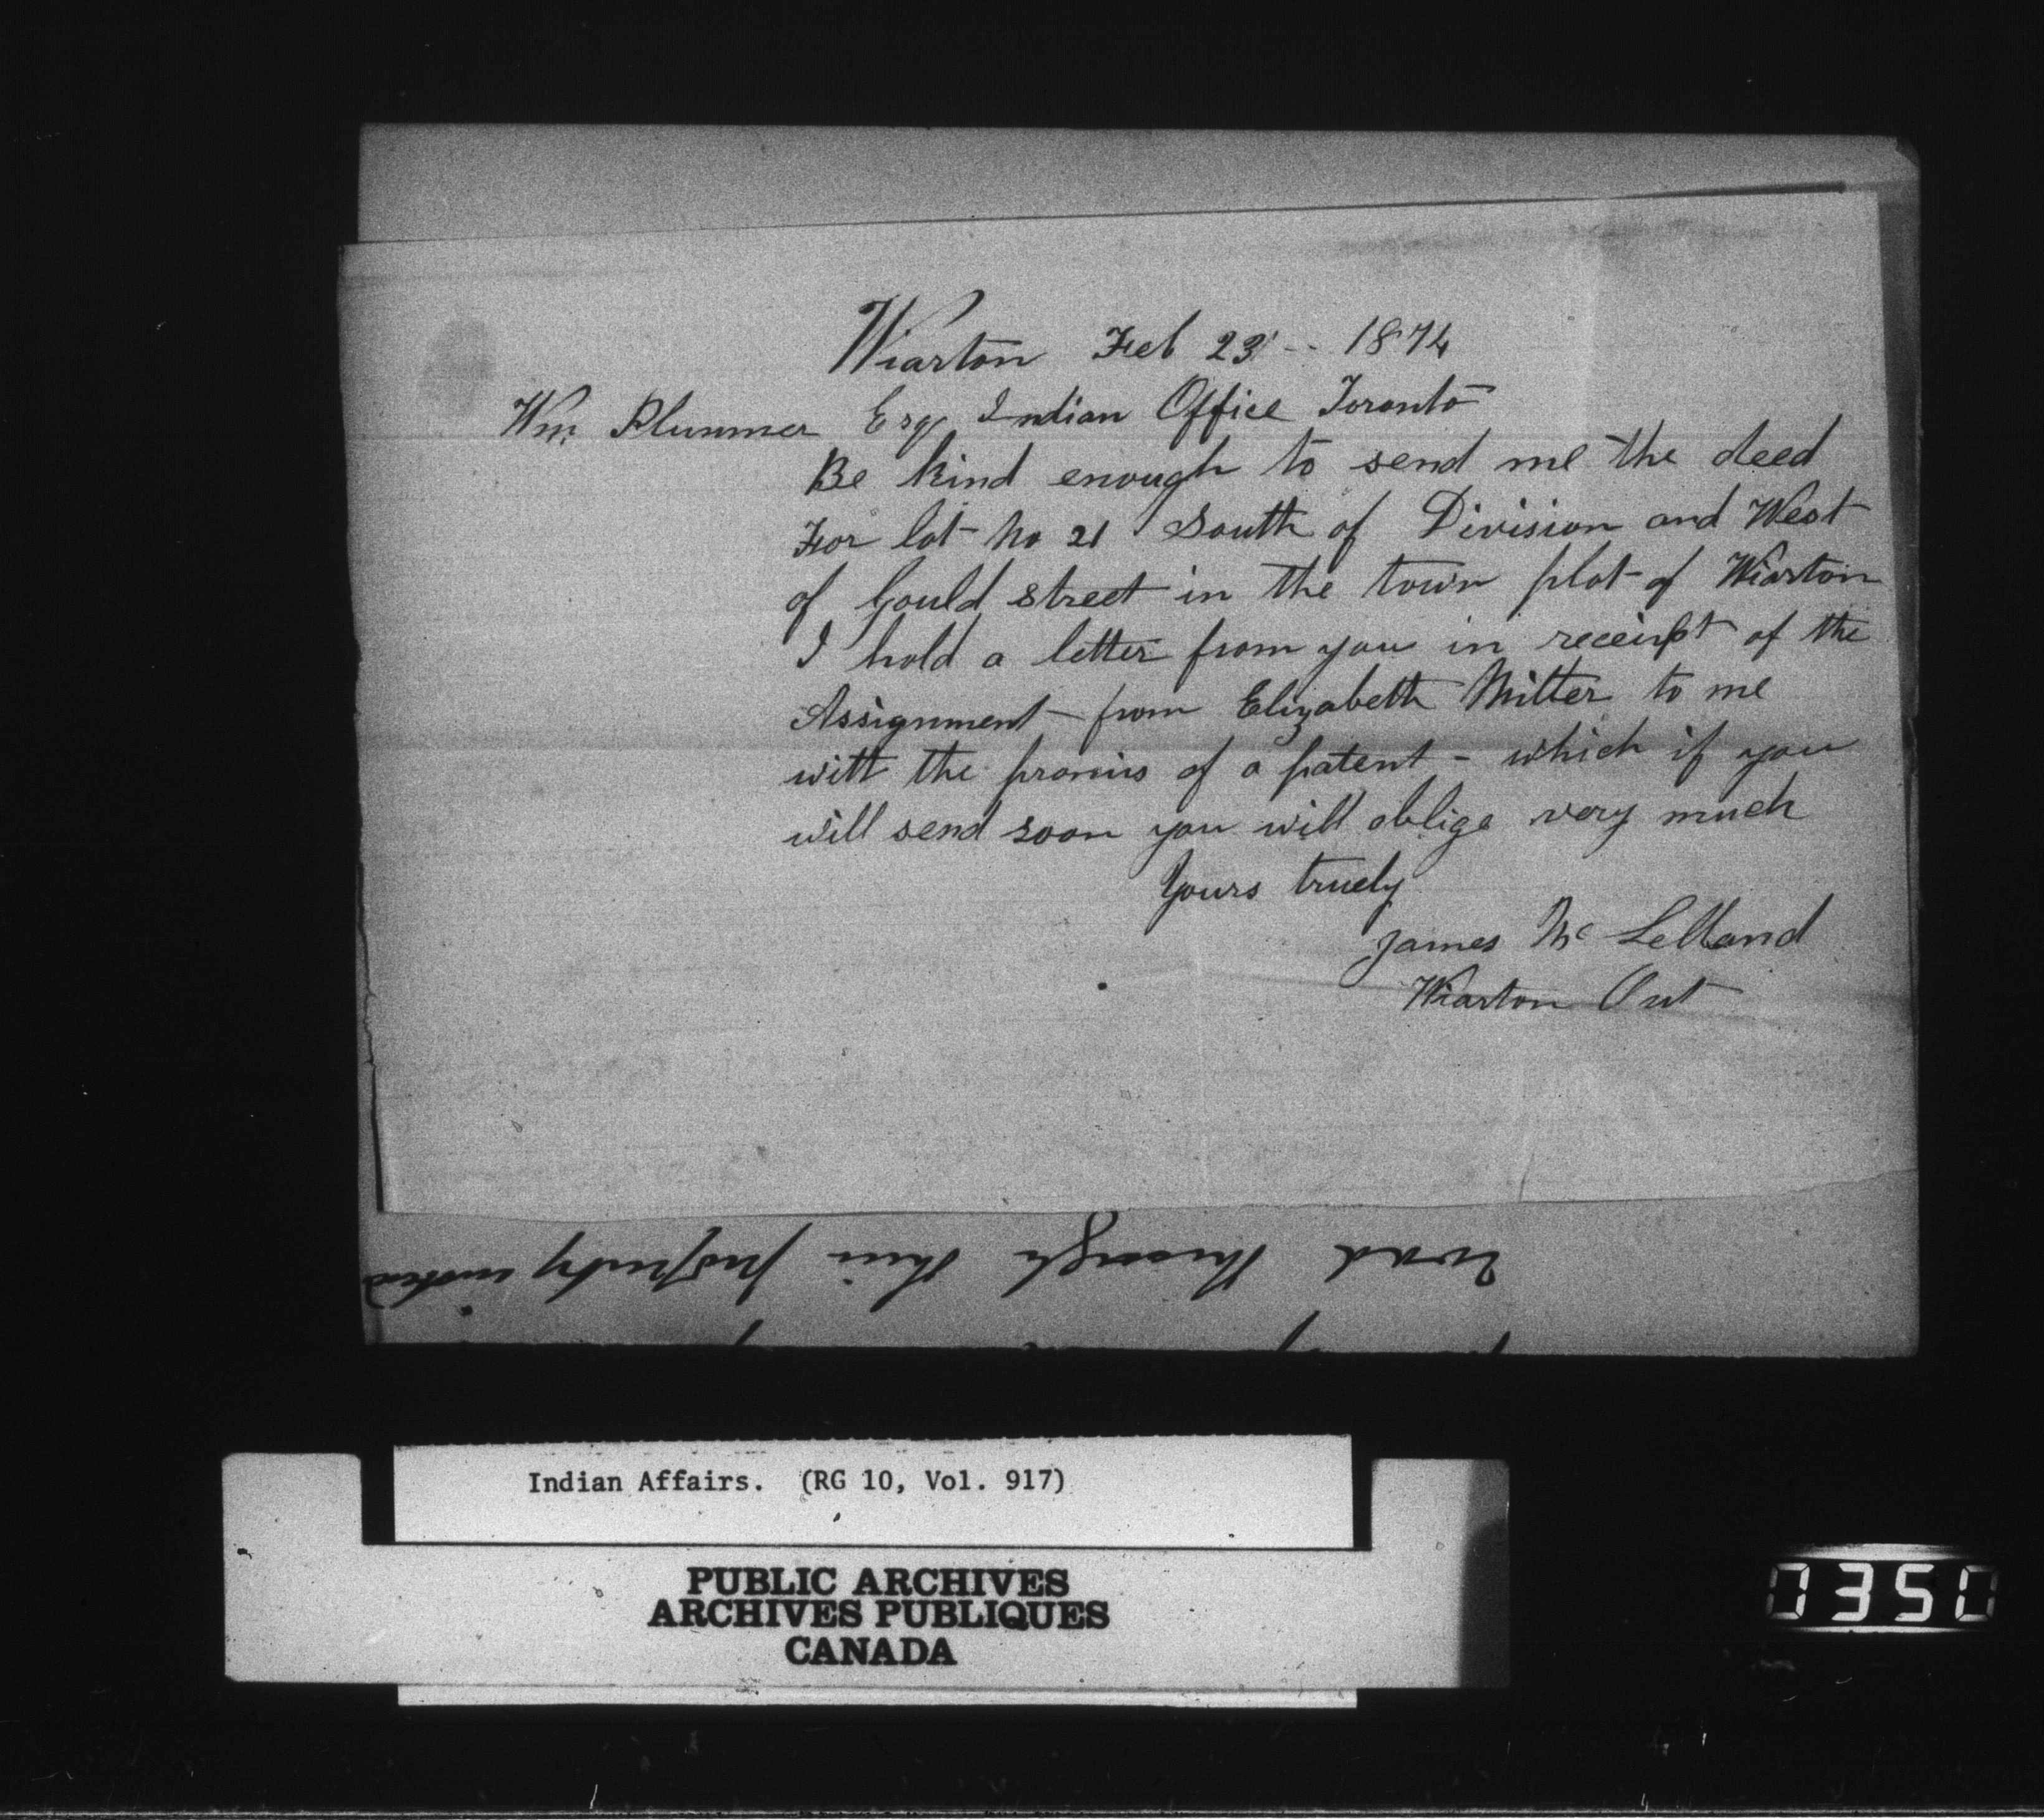 Wiarton Feb 23 -- 1874
Wm. Plummer Esq Indian Office Toronto
Be kind enough to send me the deed
For lot No 21 South of Division and West
of Gould street in the town plot of Wiarton
I hold a letter from you in receipt of the
Assignment from Elizabeth Mitter to me
witt the promis of a patent - which if you
will send soon you will oblige very much
Yours truely
James Mc Lelland
Wiarton Ont
road through their property instead
Indian Affairs. (RG 10, Vol. 917)
PUBLIC ARCHIVES
ARCHIVES PUBLIQUES
CANADA
0350